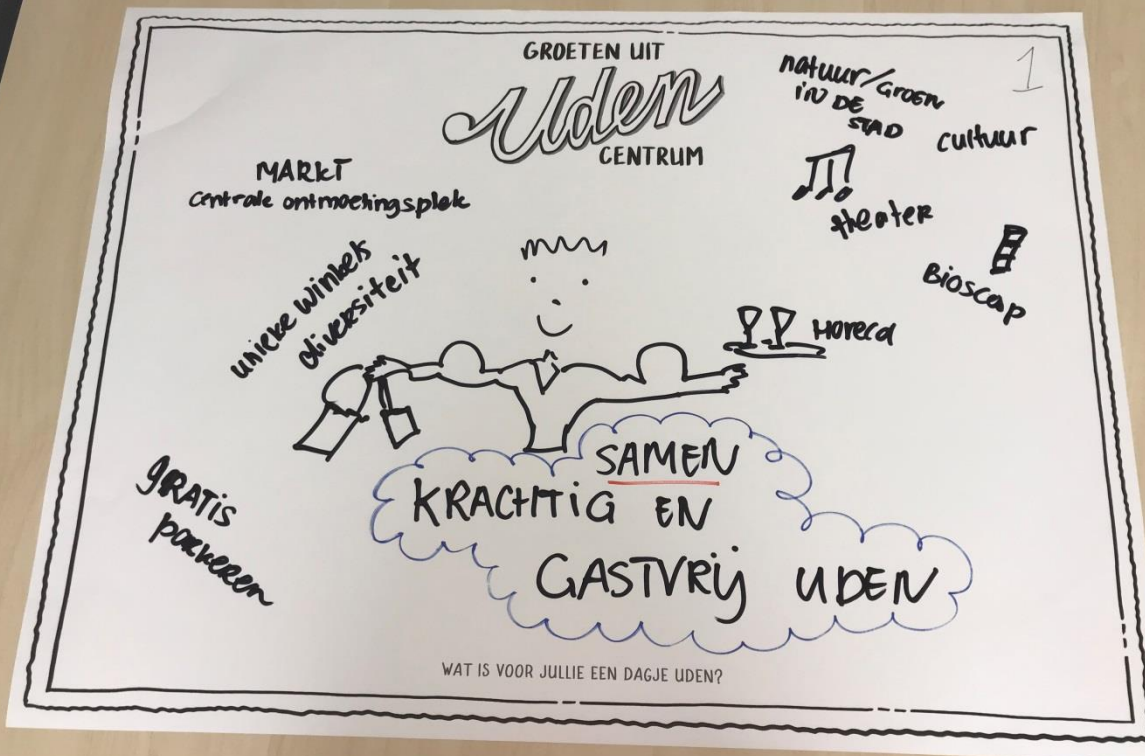 GROETEN UIT
Uden
CENTRUM
1
natuur/GROEN
IN DE
STAD
cultuur
theater
Bioscoop
MARKT
centrale ontmoetingsplek
unieke winkels
diversiteit
Horeca
gratis
parkeren
SAMEN
KRACHTIG EN
GASTVRIJ UDEN
WAT IS VOOR JULLIE EEN DAGJE UDEN?